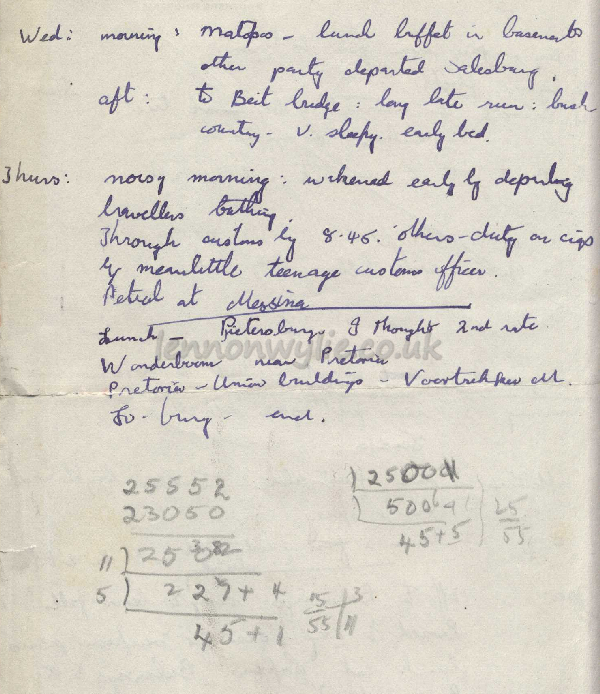 Wed: morning: Matopos - lunch buffet in basement
other party departed Salesburg.
aft: to Beit bridge: long late run: bush
country - v. sleepy. early bed.
Thurs: noisy morning: wakened early by departing
travellers bathing.
Through customs by 8.45. others - duty on cigs
by mean little teenage customs officer.
Petrol at Messina
Lunch - Pietersburg I thought 2nd rate.
lennonwylie.co.uk
Wonderboom near Pretoria
Pretoria - Union buildings - Voortrekker M.
Jo-burg - end.
25552
23050
11) 25
5) 229 + 4
45 + 1
15 3
55 11
45+5
25
55